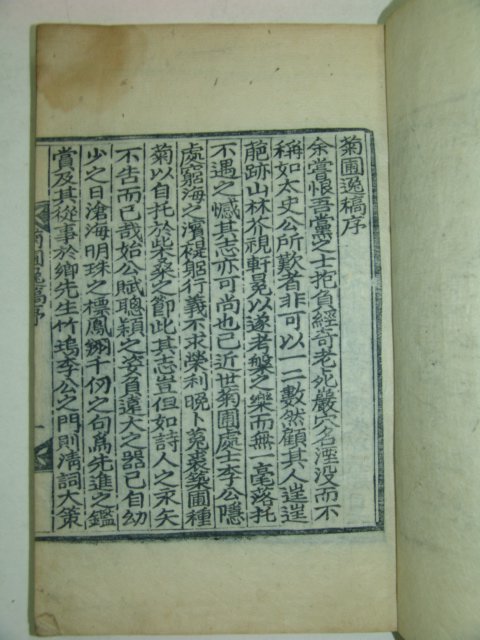 菊圃逸稿序
余嘗恨吾黨之士抱負經奇老死巖穴名湮没而不
稱如太史公所歎者非可以一二數然顧其人逬逬
葩跡山林芥視軒冕以遂考槃之樂而無一毫落托
不遇之憾其志亦可尚也已近世菊圃處士李公隱
處窮海之濱禔躬行義不求榮利晩卜菟裘築圃種
菊以自托於此桑之節此其志豈但如詩人之永矢
不告而已哉始公賦聰穎之姿負遠大之器已自幼
少之日滄海明珠之標鳳翎千仞之句爲先進之鑑
賞及其從事於鄕先生竹塢李公之門則淸詞大策
菊圃逸稿序
一